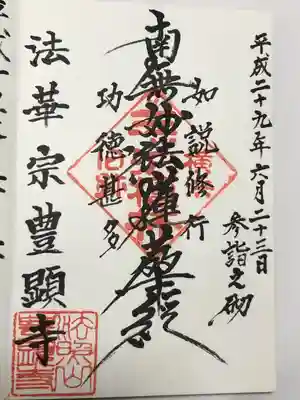 平成二十九年六月二十三日
参詣之砌
如説修行
南無妙法蓮華経
功徳甚多
法華宗豊顕寺